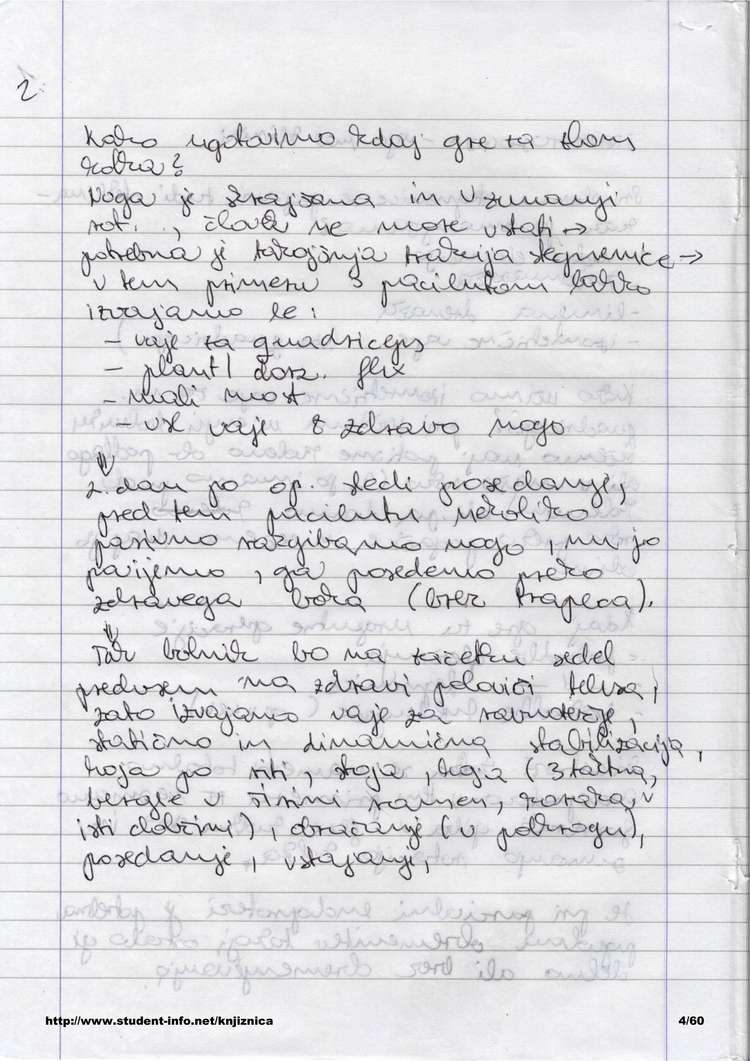 2
Kako ugotovimo kdaj gre za zlom
kolka?
Noga je skrajšana in v zunanji
rot., človek ne more vstati →
potrebna je takojšnja trakcija stegnenice →
v tem primeru s pacientom lahko
izvajamo le:
- vaje za quadriceps
- plant/dorz. flex
- mali most
- vse vaje z zdravo nogo
⇓
2. dan po op. sledi posedanje,
pred tem pacientu nekoliko
pasivno razgibamo nogo, mu jo
povijemo, ga posedemo preko
zdravega boka (brez trapeza).
⇓
Tak bolnik bo na začetku sedel
predvsem na zdravi polovici telesa,
zato izvajamo vaje za ravnotežje,
statična in dinamična stabilizacija,
hoja po niti, stoja, hoja (3 taktna,
bergle v širini ramen, v
isti dolžini), obračanje (v polkrogu),
posedanje, vstajanje,
http://www.student-info.net/knjiznica
4/60